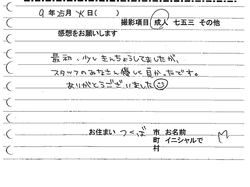 年 月 日( ) 撮影項目 成人 七五三 その他
感想をお願いします
最初、少しきんちょうしてましたが、
スタッフのみなさん優しく良かったです。
ありがとうございました
お住まい つくば 市 お名前
町 イニシャルで M
村